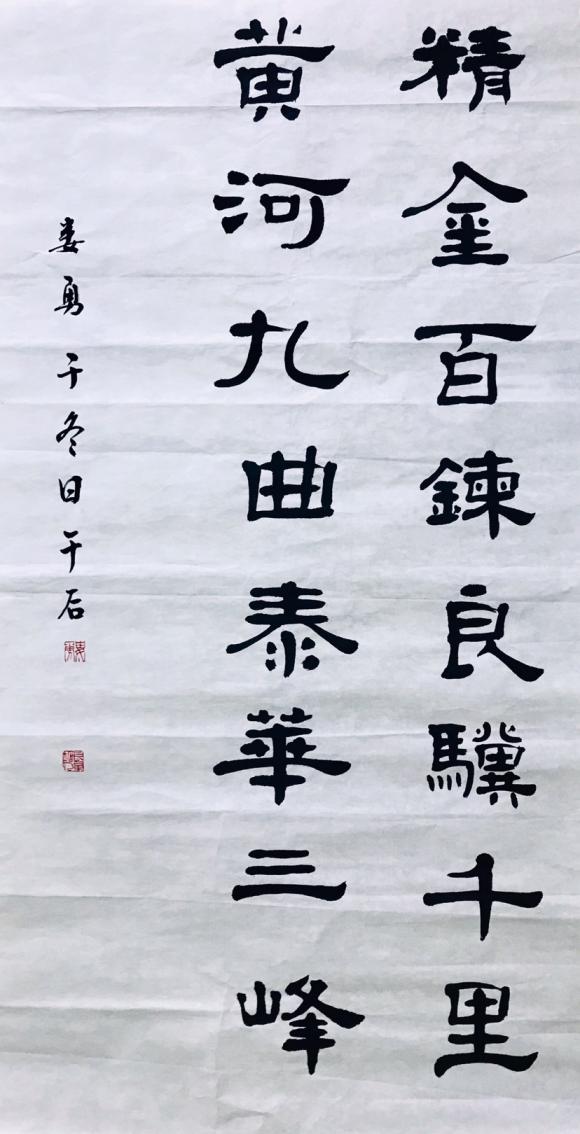 精金百鍊良驥千里
黃河九曲泰華三峰
娄勇于冬日干石